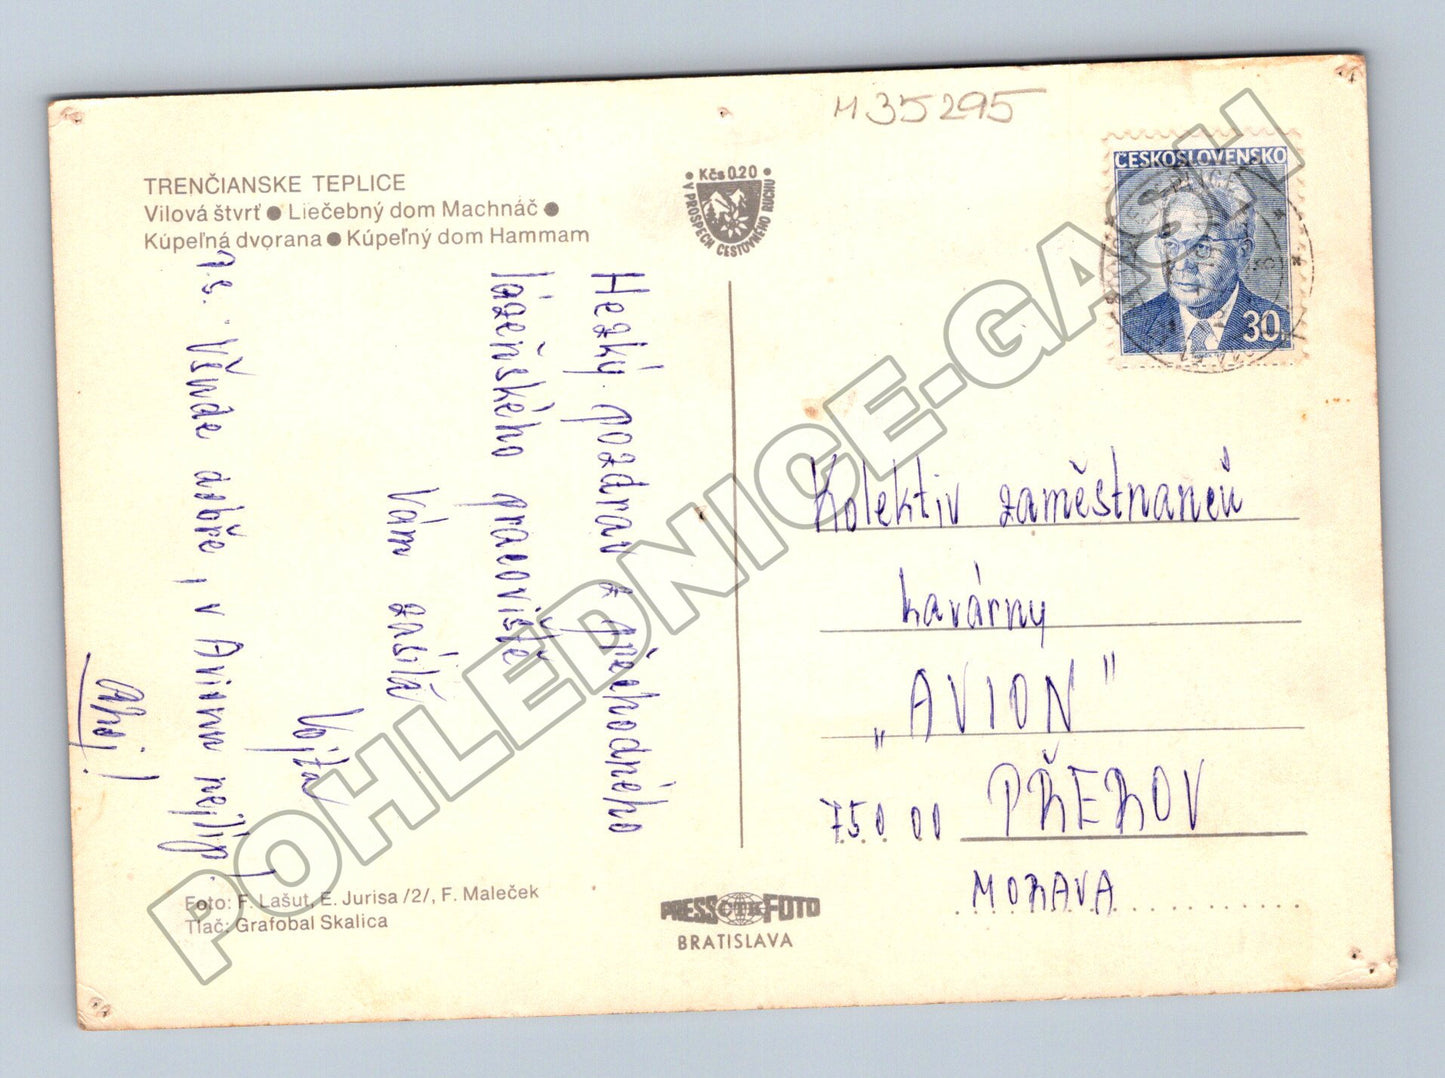 M 35295
TRENČIANSKE TEPLICE
Vilová štvrť ● Liečebný dom Machnáč ●
Kúpeľná dvorana ● Kúpeľný dom Hammam
• Kčs 0.20 •
V PROSPECH CESTOVNÉHO RUCHU
ČESKOSLOVENSKO
30
Hezký pozdrav z přechodného
lázeňského pracoviště
Vám zasílá
Vojta
P.S. Všude dobře, v Avionu nejlíp,
Ahoj!
Kolektiv zaměstnanců
kavárny
„AVION"
750 00 PŘEROV
MORAVA
Foto: F. Lašut, E. Jurisa /2/, F. Maleček
Tlač: Grafobal Skalica
PRESS ČTK FOTO
BRATISLAVA
POHLEDNICE-GASH